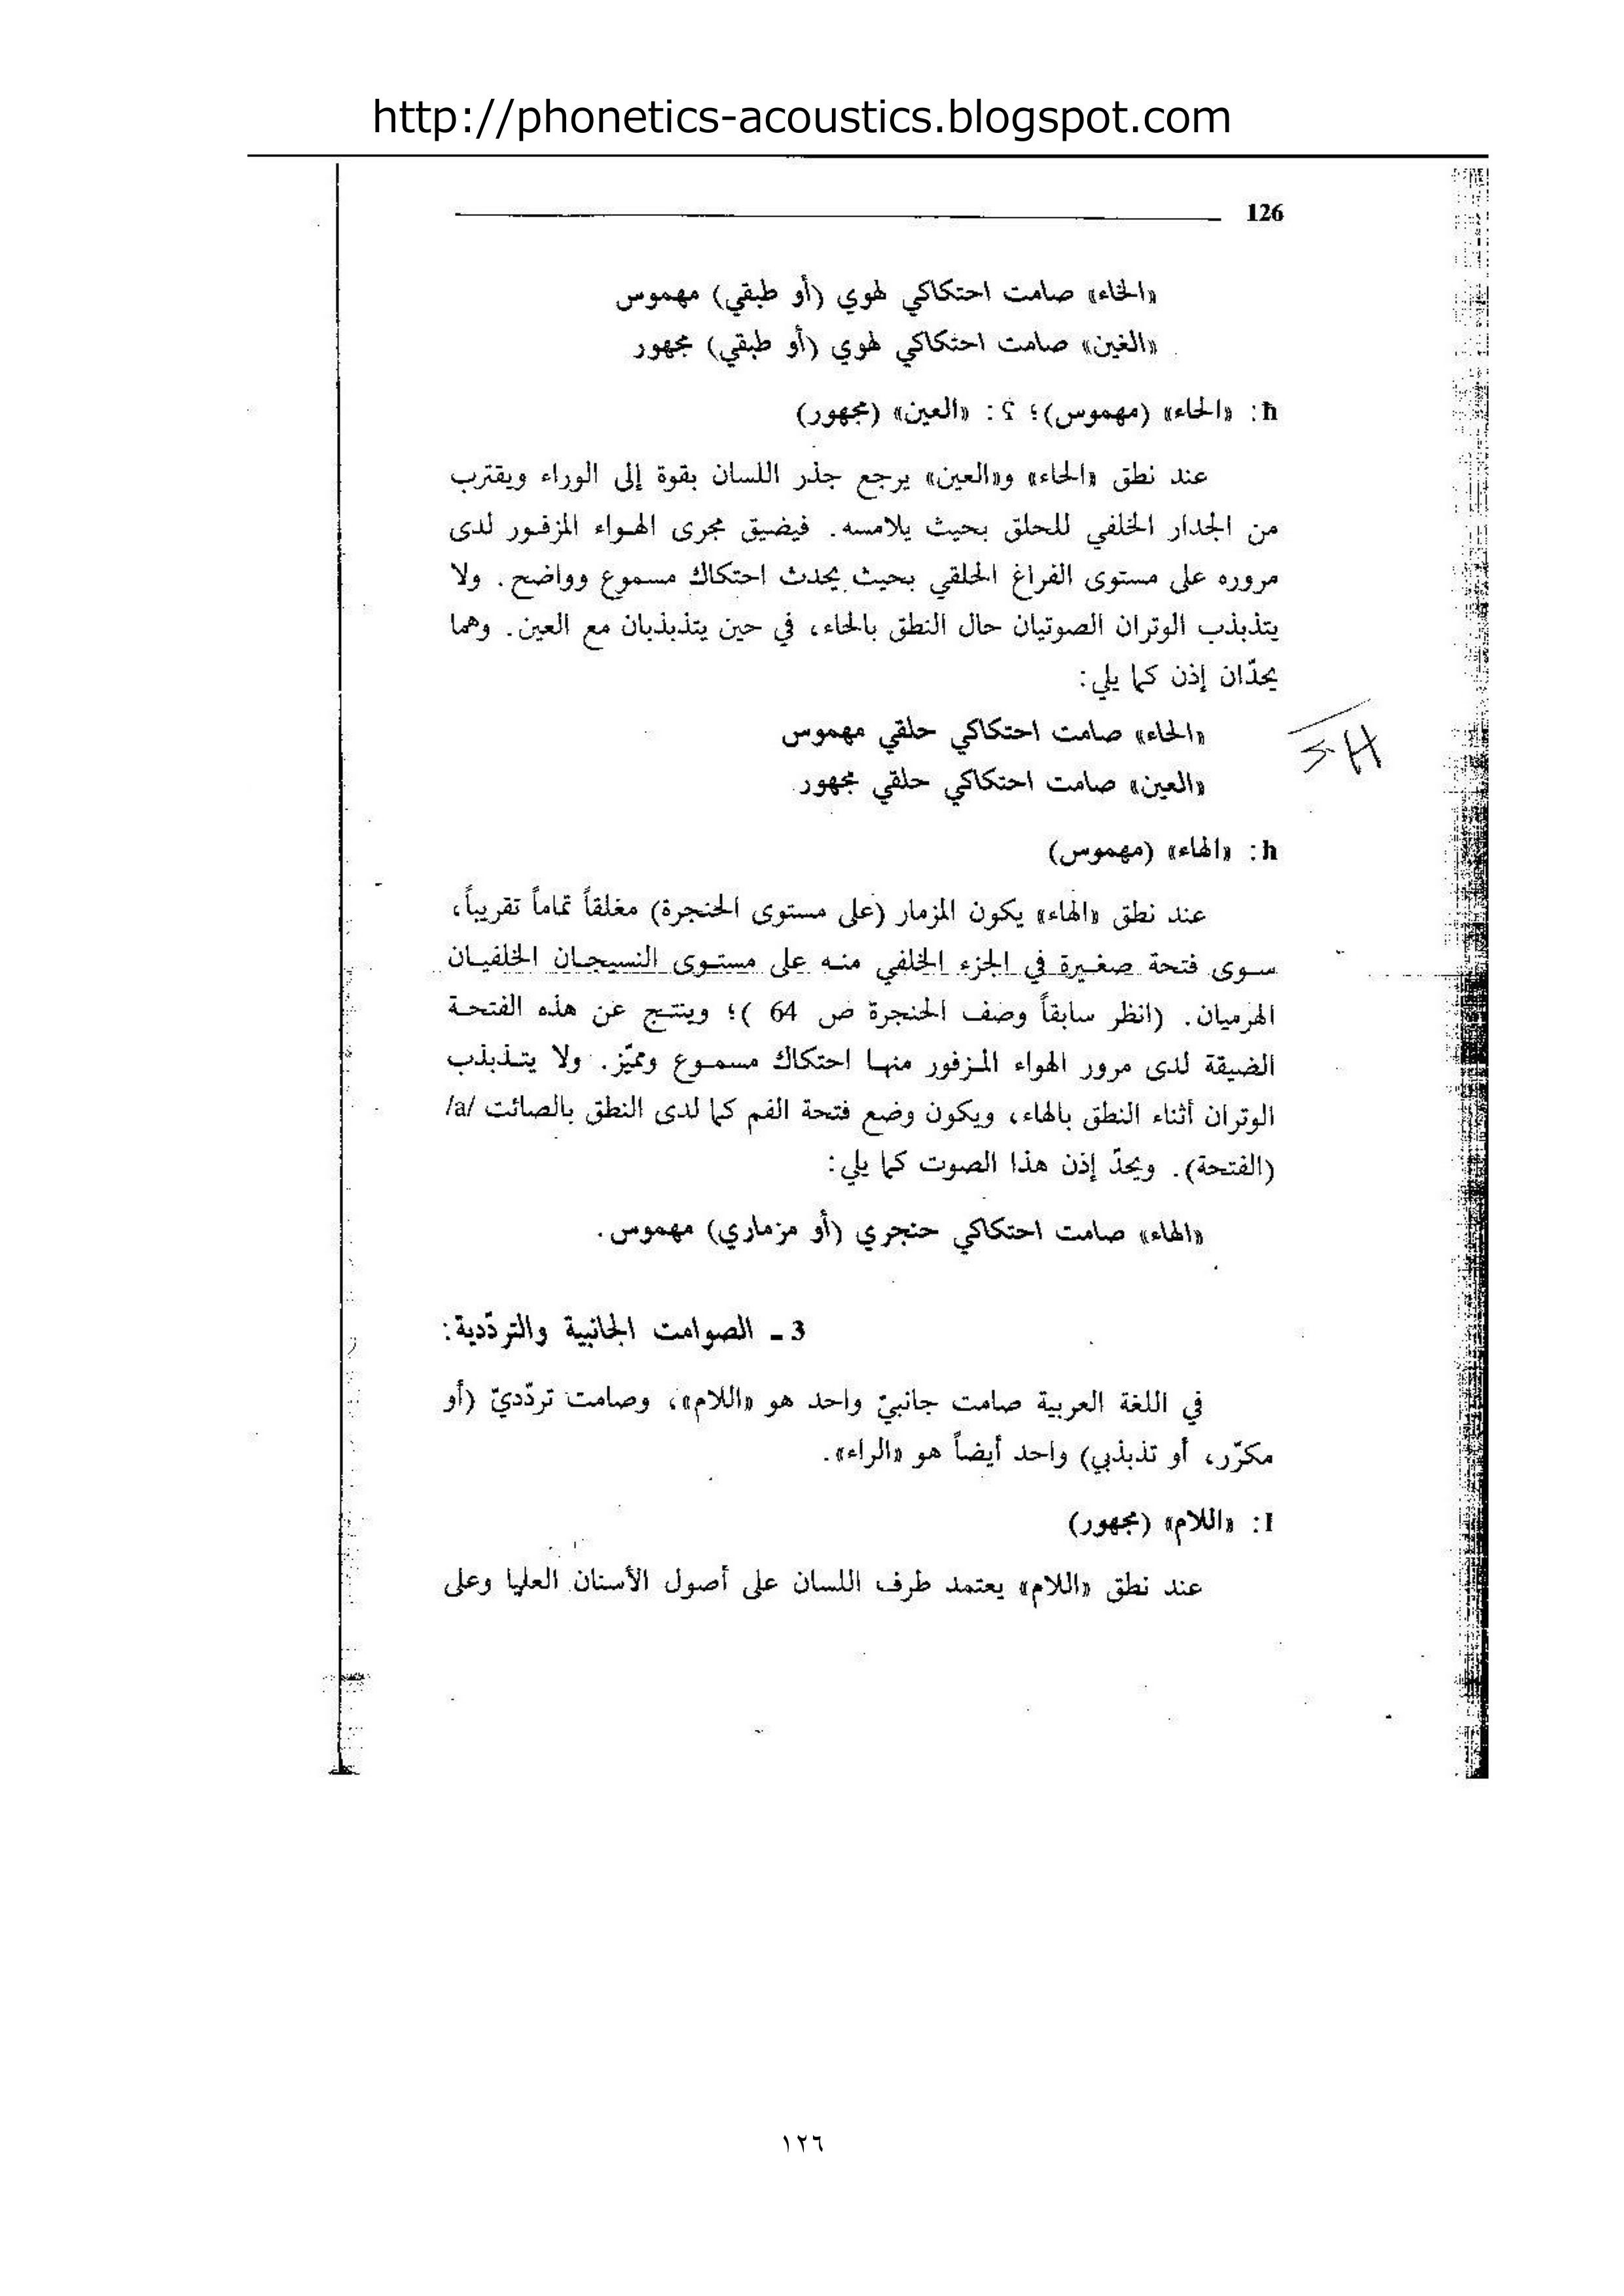 http://phonetics-acoustics.blogspot.com
126
«الخاء» صامت احتكاكي لهوي (أو طبقي) مهموس
«الغين» صامت احتكاكي لهوي (أو طبقي) مجهور
ħ: «الحاء» (مهموس)؛ ʕ: «العين» (مجهور)
عند نطق «الحاء» و«العين» يرجع جذر اللسان بقوة إلى الوراء ويقترب
من الجدار الخلفي للحلق بحيث يلامسه. فيضيق مجرى الهواء المزفور لدى
مروره على مستوى الفراغ الحلقي بحيث يحدث احتكاك مسموع وواضح. ولا
يتذبذب الوتران الصوتيان حال النطق بالحاء، في حين يتذبذبان مع العين. وهما
يحدّان إذن كما يلي:
«الحاء» صامت احتكاكي حلقي مهموس
«العين» صامت احتكاكي حلقي مجهور
h: «الهاء» (مهموس)
عند نطق «الهاء» يكون المزمار (على مستوى الحنجرة) مغلقاً تماماً تقريباً،
سوى فتحة صغيرة في الجزء الخلفي منه على مستوى النسيجان الخلفيان
الهرميان. (انظر سابقاً وصف الحنجرة ص 64 )؛ وينتج عن هذه الفتحة
الضيقة لدى مرور الهواء المزفور منها احتكاك مسموع ومميّز. ولا يتذبذب
الوتران أثناء النطق بالهاء، ويكون وضع فتحة الفم كما لدى النطق بالصائت /a/
(الفتحة). ويحدّ إذن هذا الصوت كما يلي:
«الهاء» صامت احتكاكي حنجري (أو مزماري) مهموس.
3 ـ الصوامت الجانبية والتردّدية:
في اللغة العربية صامت جانبيّ واحد هو «اللام»، وصامت تردّديّ (أو
مكرّر، أو تذبذبي) واحد أيضاً هو «الراء».
l: «اللام» (مجهور)
عند نطق «اللام» يعتمد طرف اللسان على أصول الأسنان العليا وعلى
١٢٦